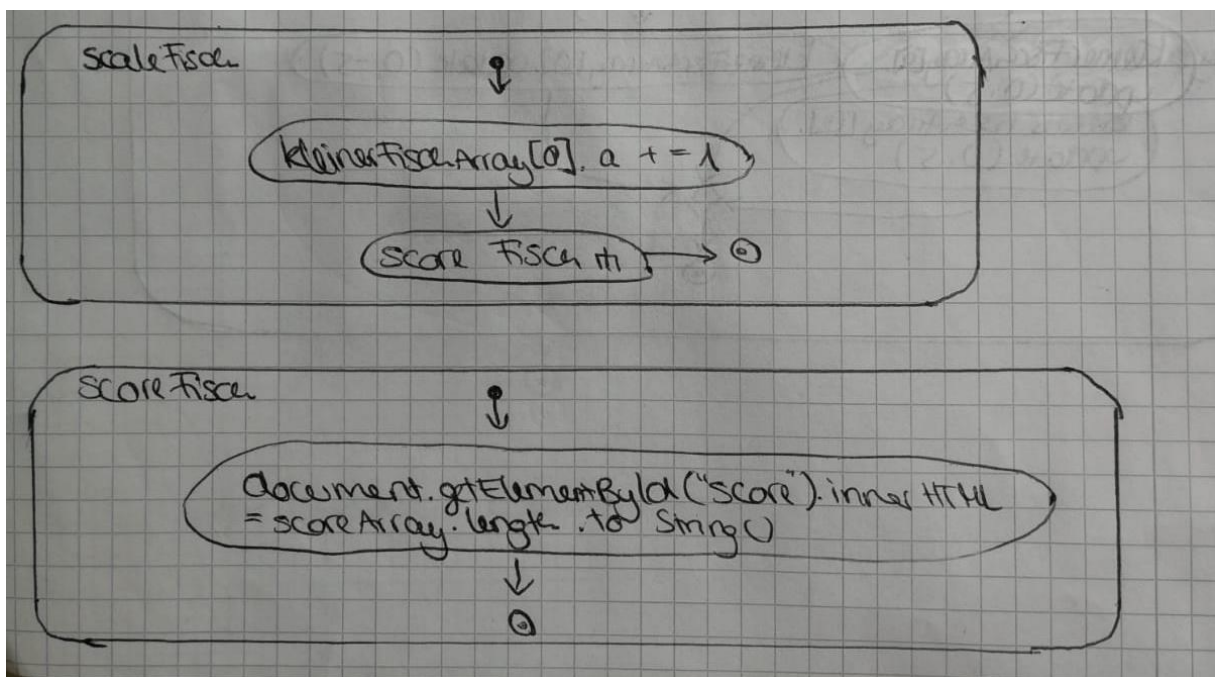 scaleFisch
kleinerFischArray[0]. a += 1
score Fisch ⋔
scoreFisch
document.getElementById("score").innerHTML
= scoreArray.length .to String()